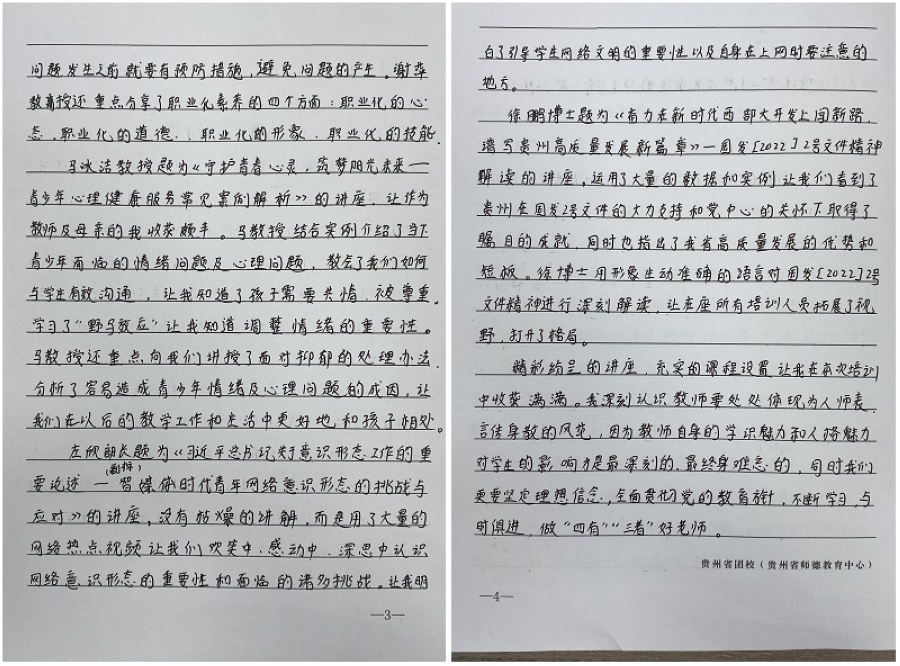 问题发生之前就要有预防措施,避免问题的产生。谢华
教育授还重点分享了职业化素养的四个方面:职业化的心
态、职业化的道德、职业化的形象、职业化的技能.
马冰洁教授题为《守护青春心灵,筑梦阳光未来—
青少年心理健康服务常见案例解析》的讲座,让作为
教师及母亲的我收获颇丰。马教授结合实例介绍了当下
青少年面临的情绪问题及心理问题,教会了我们如何
与学生有效沟通,让我知道了孩子需要共情,被尊重.
学习了“野马效应”让我知道调整情绪的重要性。
马教授还重点向我们讲授了面对抑郁的处理办法.
分析了容易造成青少年情绪及心理问题的成因,让
我们在以后的教学工作和生活中更好地和孩子相处.
左欣部长题为《习近平总书记关于意识形态工作的重
要论述—智媒体时代青年网络意识形态的挑战与
应对》的讲座,没有枯燥的讲解,而是用了大量的
网络热点视频让我们欢笑中、感动中、深思中认识
网络意识形态的重要性和面临的诸多挑战。让我明
—3—
白了引导学生网络文明的重要性以及自身在上网时要注意的
地方。
徐鹏博士题为《奋力在新时代西部大开发上闯新路,
谱写贵州高质量发展新篇章》—国发[2022]2号文件精神
解读的讲座,运用了大量的数据和实例让我们看到了
贵州在国发2号文件的大力支持和党中心的关怀下取得了
瞩目的成就,同时也指出了我省高质量发展的优势和
短板。徐博士用形象生动准确的语言对国发[2022]2号
文件精神进行深刻解读,让在座所有培训人员拓展了视
野,打开了格局。
精彩纷呈的讲座,充实的课程设置让我在本次培训
中收获满满。我深刻认识教师要处处体现为人师表、
言传身教的风范,因为教师自身的学识魅力和人格魅力
对学生的影响才是最深刻的、最终身难忘的,同时我们
更要坚定理想信念,全面贯彻党的教育方针,不断学习,与
时俱进,做“四有”“三者”好老师。
贵州省团校(贵州省师德教育中心)
—4—